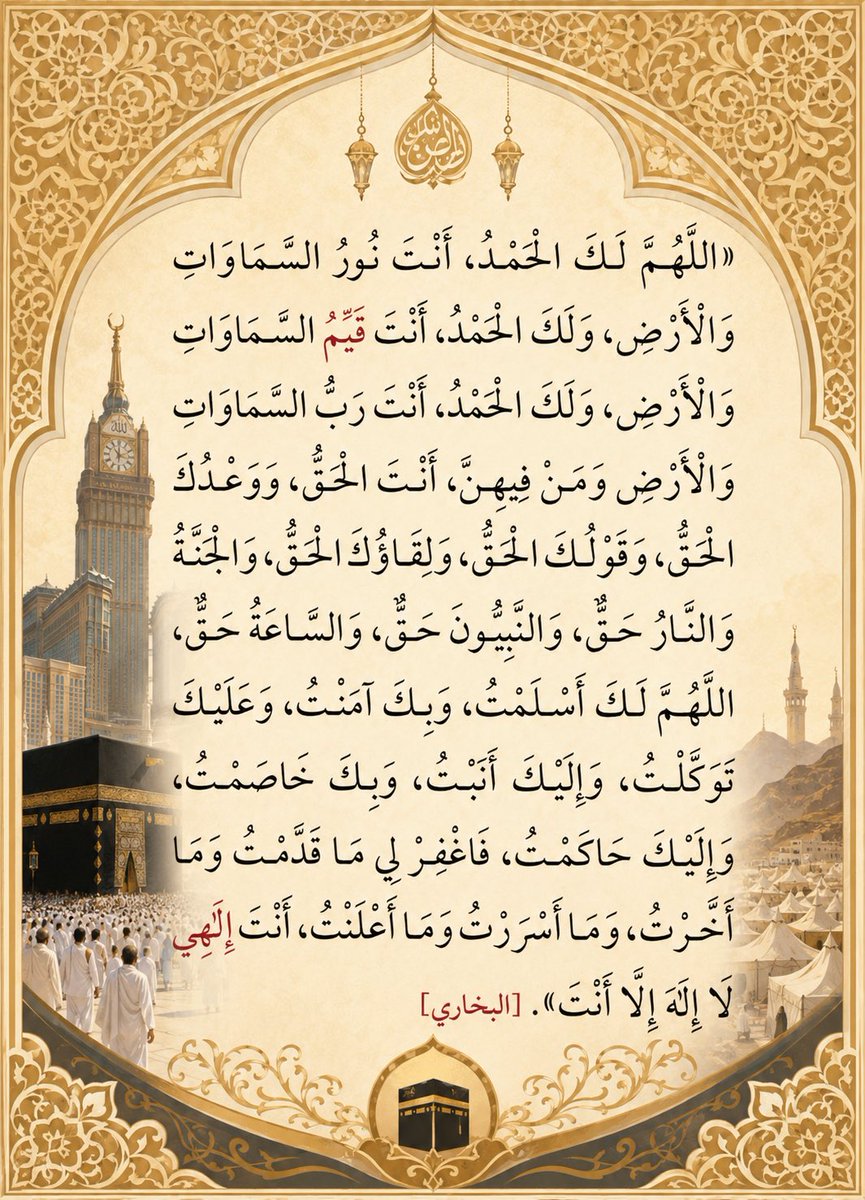 «اللَّهُمَّ لَكَ الْحَمْدُ، أَنْتَ نُورُ السَّمَاوَاتِ
وَالْأَرْضِ، وَلَكَ الْحَمْدُ، أَنْتَ قَيِّمُ السَّمَاوَاتِ
وَالْأَرْضِ، وَلَكَ الْحَمْدُ، أَنْتَ رَبُّ السَّمَاوَاتِ
وَالْأَرْضِ وَمَنْ فِيهِنَّ، أَنْتَ الْحَقُّ، وَوَعْدُكَ
الْحَقُّ، وَقَوْلُكَ الْحَقُّ، وَلِقَاؤُكَ الْحَقُّ، وَالْجَنَّةُ
وَالنَّارُ حَقٌّ، وَالنَّبِيُّونَ حَقٌّ، وَالسَّاعَةُ حَقٌّ،
اللَّهُمَّ لَكَ أَسْلَمْتُ، وَبِكَ آمَنْتُ، وَعَلَيْكَ
تَوَكَّلْتُ، وَإِلَيْكَ أَنَبْتُ، وَبِكَ خَاصَمْتُ،
وَإِلَيْكَ حَاكَمْتُ، فَاغْفِرْ لِي مَا قَدَّمْتُ وَمَا
أَخَّرْتُ، وَمَا أَسْرَرْتُ وَمَا أَعْلَنْتُ، أَنْتَ إِلَٰهِي
لَا إِلَٰهَ إِلَّا أَنْتَ». [البخاري]
الله